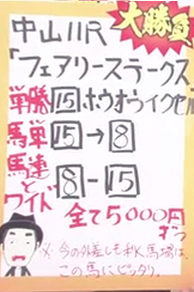 大勝負
中山11R
「フェアリーステークス
単勝15ホウオウイクセル
馬単15→8
馬連とワイド8-15
全て5000円ずつ
※今の外差しも利く馬場は
この馬にピッタリ。